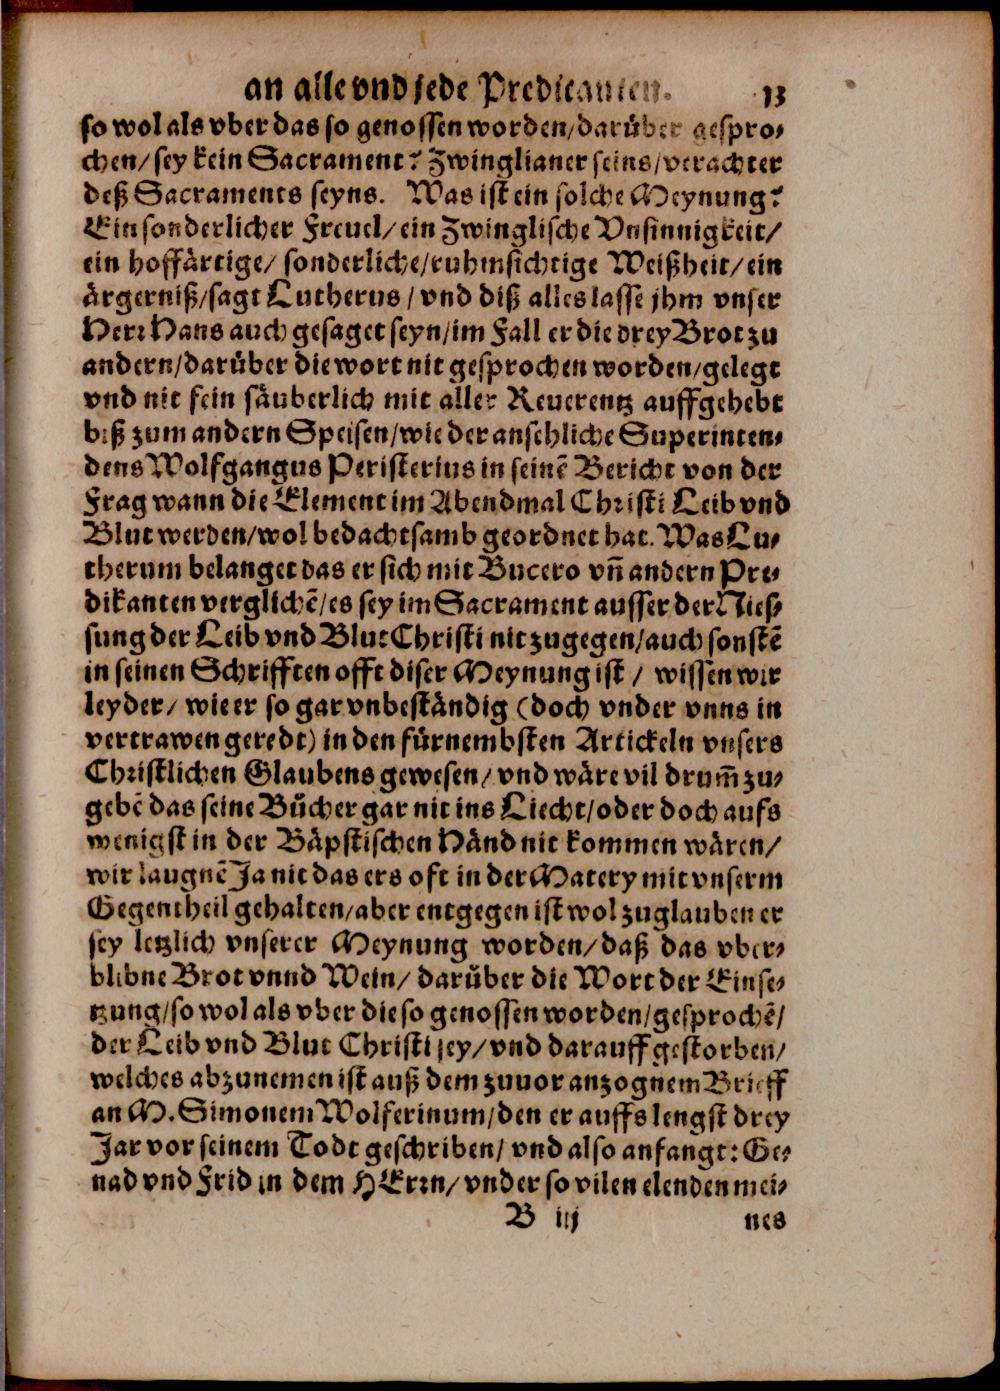 an alle vnd jede Predicanten. 13
so wol als vber das so genossen worden/darüber gespro⸗
chen/sey kein Sacrament? Zwinglianer seins/verachter
deß Sacraments seyns. Was ist ein solche Meynung?
Ein sonderlicher Freuel/ein Zwinglische Vnsinnigkeit/
ein hoffärtige/ sonderliche/ruhmsichtige Weißheit/ein
ärgerniß/sagt Lutherus/ vnd diß alles lasse jhm vnser
Herr Hans auch gesaget seyn/im Fall er die drey Brot zu
andern/darüber die wort nit gesprochen worden/gelegt
vnd nit fein säuberlich mit aller Reuerentz auffgehebt
biß zum andern Speisen/wie der ansehliche Superinten⸗
dens Wolfgangus Peristerius in seinē Bericht von der
Frag wann die Element im Abendmal Christi Leib vnd
Blut werden/wol bedachtsamb geordnet hat. Was Lu⸗
therum belanget das er sich mit Bucero vn̄ andern Pre⸗
dikanten verglichē/es sey im Sacrament ausser der Nies⸗
sung der Leib vnd Blut Christi nit zugegen/auch sonstē
in seinen Schrifften offt diser Meynung ist / wissen wir
leyder/ wie er so gar vnbeständig (doch vnder vnns in
vertrawen geredt) in den fürnembsten Artickeln vnsers
Christlichen Glaubens gewesen/ vnd wäre vil drum̄ zu⸗
gebē das seine Bücher gar nit ins Liecht/oder doch aufs
wenigst in der Bäpstischen Händ nit kommen wären/
wir laugnē Ja nit das ers oft in der Matery mit vnserm
Gegentheil gehalten/aber entgegen ist wol zuglauben er
sey letzlich vnserer Meynung worden/daß das vber⸗
blibne Brot vnnd Wein/ darüber die Wort der Einse⸗
tzung/so wol als vber die so genossen worden/gesprochē/
der Leib vnd Blut Christi sey/vnd darauff gestorben/
welches abzunemen ist auß dem zuuor anzognem Brieff
an M. Simonem Wolferinum/den er auffs lengst drey
Jar vor seinem Todt geschriben/ vnd also anfangt: Ge⸗
nad vnd Frid in dem HErrn/ vnder so vilen elenden mei⸗
B iij nes